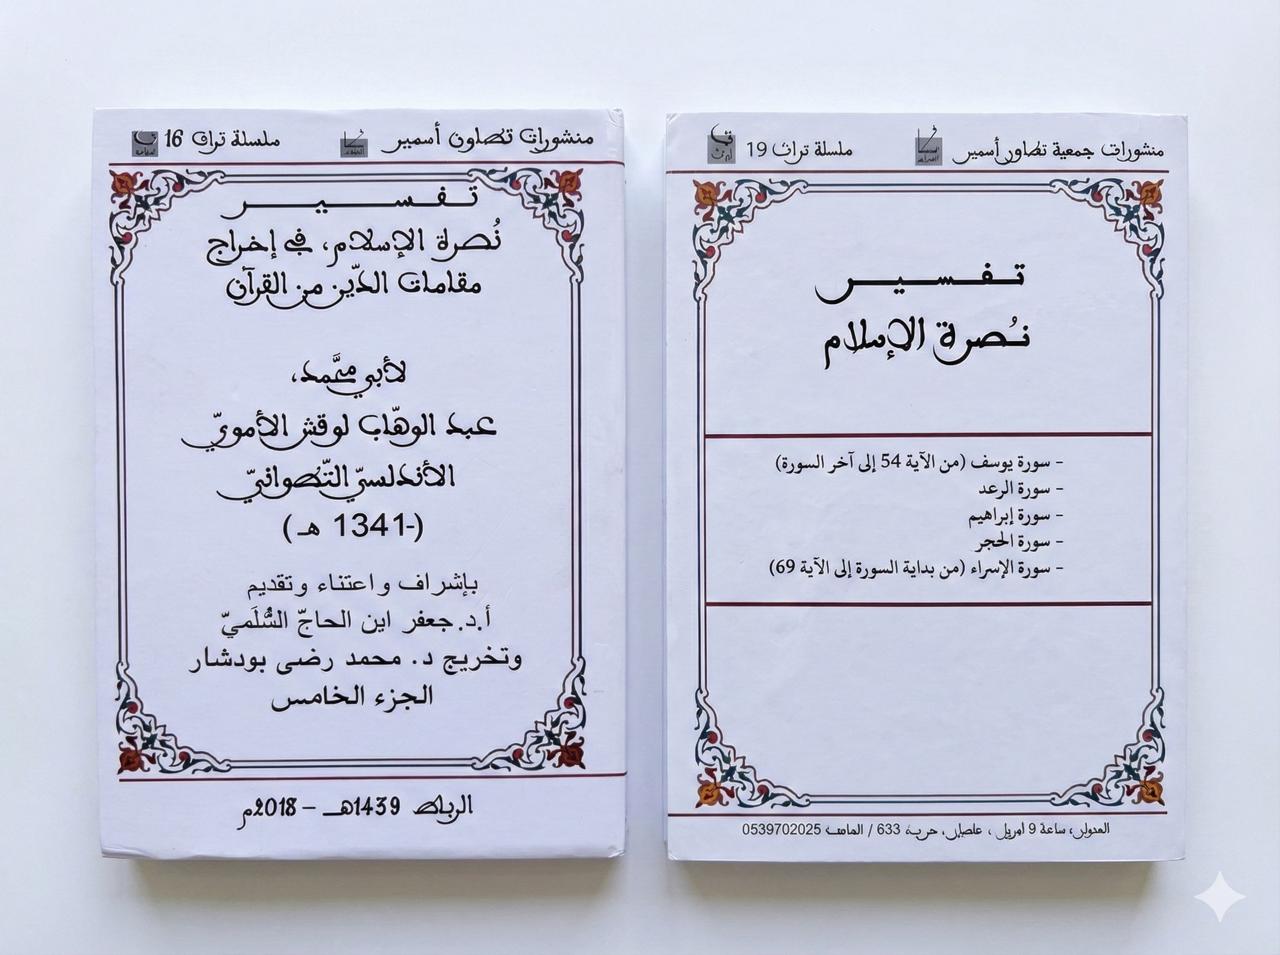 منشورات تطاون أسمير
سلسلة تراث 16
تفسير
نُصرة الإسلام، في إخراج
مقامات الدّين من القرآن
لأبي محمّد،
عبد الوهّاب لوقش الأمويّ
الأندلسيّ التّطوانيّ
(-1341 هـ)
بإشراف واعتناء وتقديم
أ.د. جعفر ابن الحاجّ السُّلَميّ
وتخريج د. محمد رضى بودشار
الجزء الخامس
الرباط 1439هـ – 2018م
منشورات جمعية تطاون أسمير
سلسلة تراث 19
تفسير
نُصرة الإسلام
- سورة يوسف (من الآية 54 إلى آخر السورة)
- سورة الرعد
- سورة إبراهيم
- سورة الحجر
- سورة الإسراء (من بداية السورة إلى الآية 69)
9 / 633 0539702025